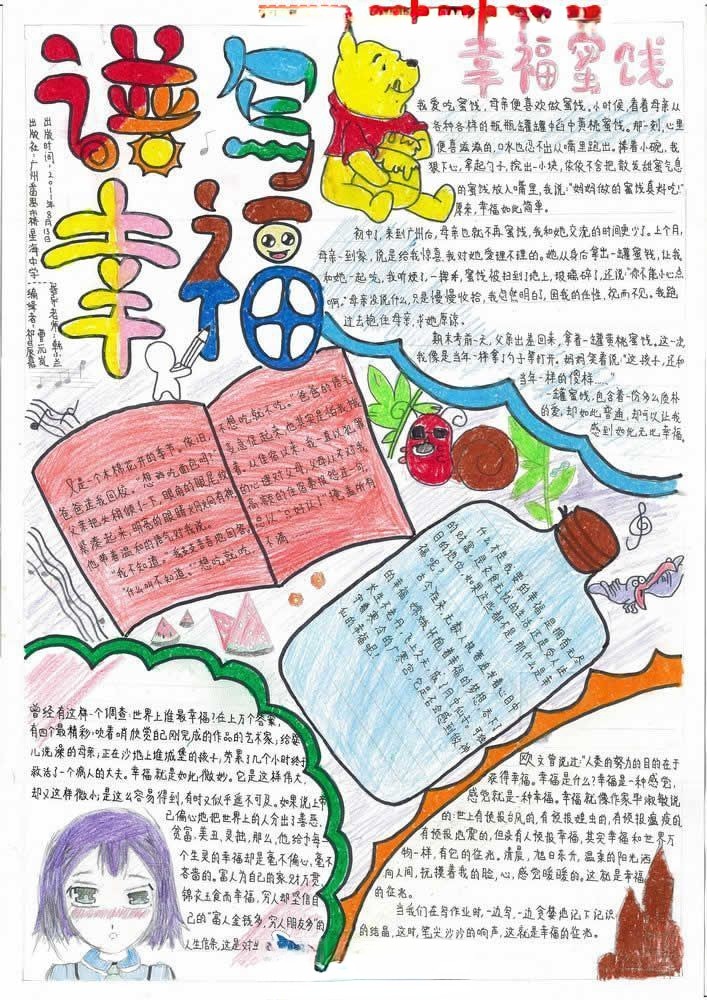 谱写
幸福
出版时间：2011年8月13日
幸福蜜饯
我爱吃蜜饯，母亲便喜欢做蜜饯。小时候，看着母亲从
各种各样的瓶瓶罐罐中舀中黄桃蜜饯。那一刻，心里
便喜滋滋的，口水也忍不出从嘴里跑出。捧着小碗，我
狠下心，拿起勺子，挖出一小块，依依不舍把散发甜蜜气息
的蜜饯放入嘴里，我说："妈妈做的蜜饯真好吃！"
原来，幸福如此简单。
初中了，来到广州后，母亲也就不再蜜饯，我和她交流的时间更少了。上个月，
母亲一到家，说是给我惊喜，我对她爱理不理的。她从身后拿出一罐蜜饯，让我
和她一起吃，我听烦了，一挥手，蜜饯被扫到了地上，玻璃碎了，还说"你不能小心点
啊。"母亲没说什么，只是慢慢收拾，我忽然明白了，因我的任性，视而不见。我跑
过去抱住母亲，求她原谅。
期末考前一天，父亲出差回来，拿着一罐黄桃蜜饯。这一次
我像是当年一样拿了勺子等打开。妈妈笑着说："这孩子，还和
当年一样的傻样……"
一罐蜜饯，包含着一份多么质朴
的爱，却如此普通，却可以让我
感到如此无比幸福。
又是一个木棉花开的季节。依旧，
爸爸送我回校。"想吃吃面包吗？"
父亲把头稍倾了一下，眼角的眼皮
紧凑起来，明亮的眼睛
他带着温和的语气对我说。
"我不知道。"我支支吾吾地回答。
"什么叫不知道，想吃就吃，
不想吃就不吃。"爸爸的语气
什么才是我要的幸福，是拥有无尽
的财富，是衣食无忧的生活，还是令人注
目的地位，如果这些都不是，那什么是幸
福呢？
曾经有这样一个调查：世界上谁最幸福？在上万个答案，
有四个最精彩：吹着哨欣赏自己刚完成的作品的艺术家；给婴
儿洗澡的母亲；正在沙地上堆城堡的孩子；劳累了几个小时终于
救活了一个病人的大夫。幸福就是如此微妙。它是这样伟大，
却又这样微小；是这么容易得到，有时又似乎遥不可及。如果说上帝
已偏心地把世界上的人分出了善恶、
贫富、美丑、灵拙，那么，他给予每一
个生灵的幸福却是毫不偏心，毫不
吝啬的。富人为自己的家财万贯
锦衣玉食而幸福，穷人却坚信自
己的"富人金钱多，穷人朋友多"的
人生信条，这是对世
欧文曾说过："人类的努力的目的在于
获得幸福。幸福是什么？幸福是一种感觉，
感觉就是一种幸福。幸福就像作家毕淑敏说
的：世上有预报台风的，有预报蝗虫的，有预报瘟疫的
有预报地震的，但没有人预报幸福，其实幸福和世界万
物一样，有它的征兆。清晨，旭日东升，温柔的阳光洒
向人间，抚摸着我的脸，心，感觉暖暖的。这就是幸福
的征兆。
当我们在写作业时，一边写，一边贪婪地记下记识
的结晶，这时，笔尖沙沙的响声，这就是幸福的征兆。